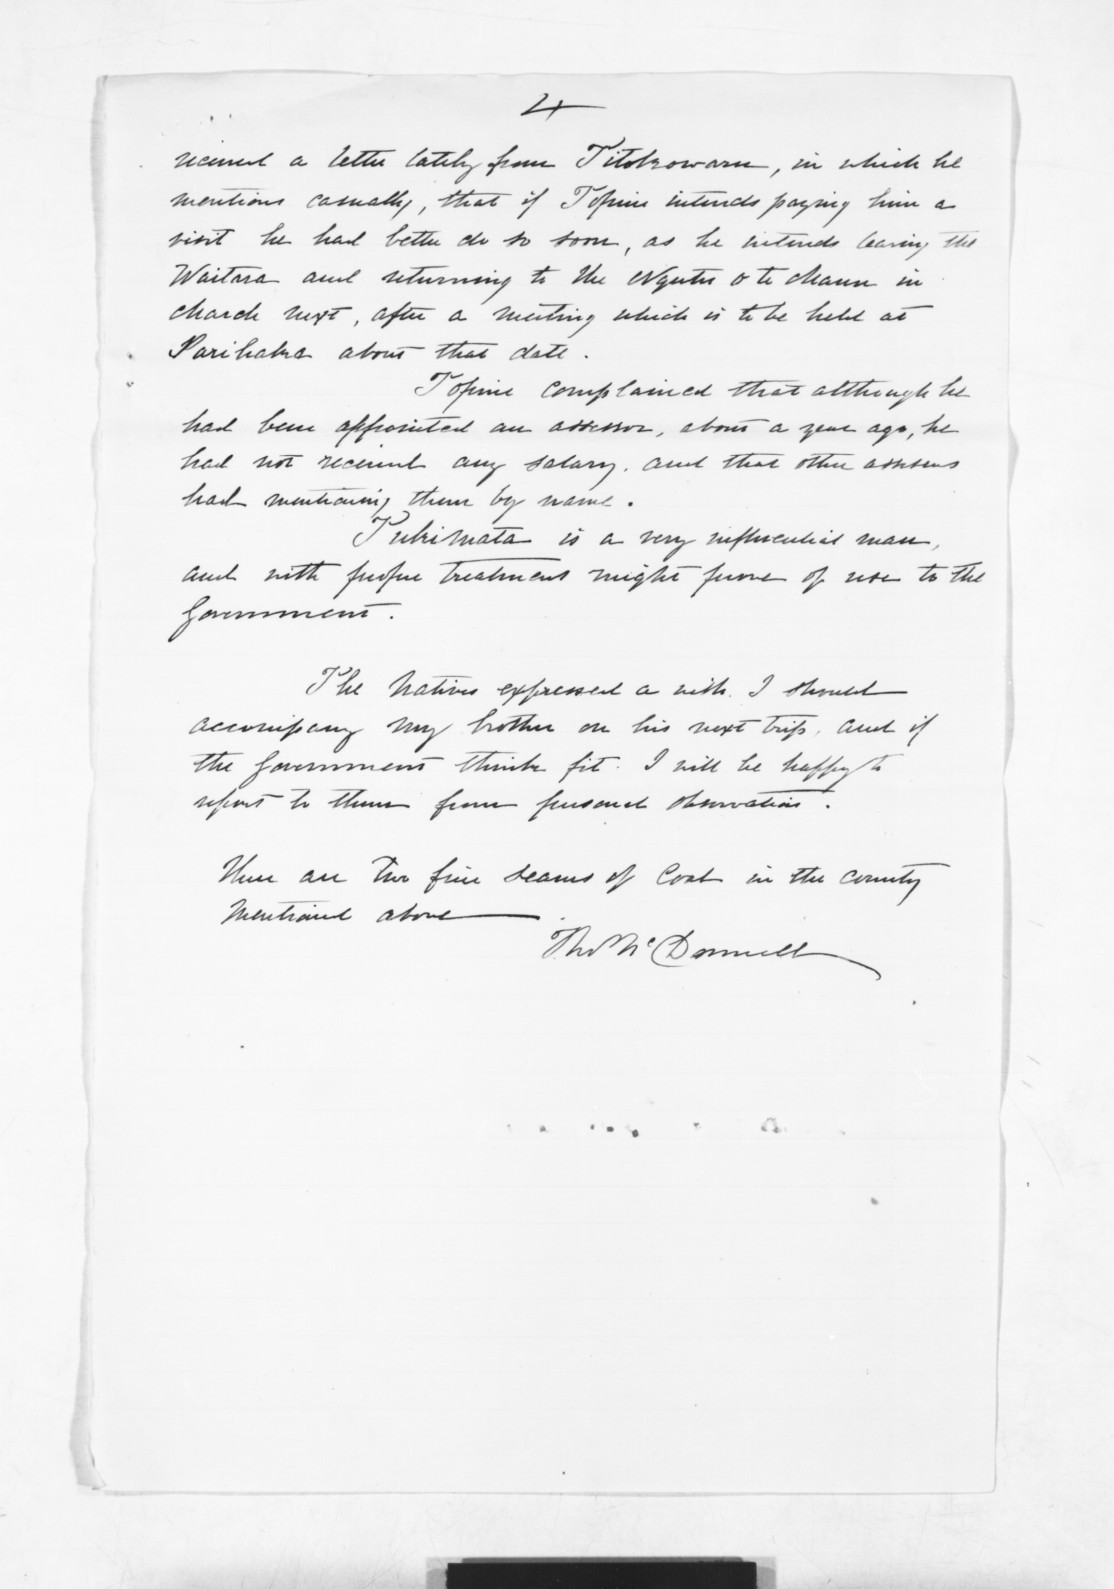 4
received a letter lately from Titokowaru, in which he
mentions casually, that if Topine intends paying him a
visit he had better do so soon, as he intends leaving the
Waitara and returning to the Ngutu o te Manu in
March next, after a meeting which is to be held at
Parihaka about that date.
Topine complained that although he
had been appointed an assessor, about a year ago, he
had not received any salary. and that other assessors
had mentioning them by name.
Tukimata is a very influential man,
and with proper treatment might prove of use to the
Government.
The Natives expressed a wish. I should
accompany my brother on his next trip, and if
the Government think fit. I will be happy to
report to them from personal observation.
There are two fine seams of Coal in the county
mentioned above
Thos McDonnell